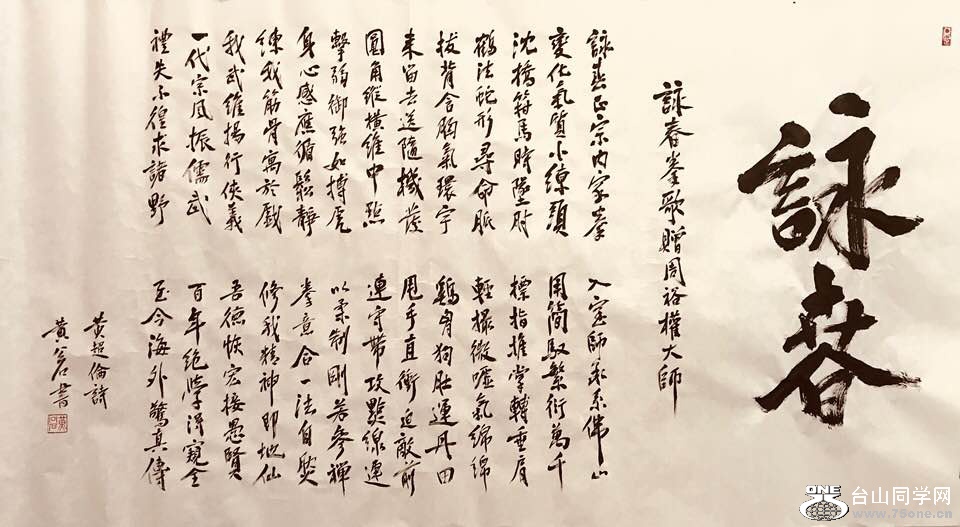 詠春
詠春拳歌贈周裕權大師
詠春正宗內家拳 入室師承系佛山
變化氣質小練頭 用簡馭繁衍萬千
沈橋箝馬時墜肘 標指推掌轉垂肩
鶴法蛇形尋命脈 輕撮微噓氣綿綿
拔背含胸氣環宇 鷄胷狗肚運丹田
来留去送隨機發 甩手直衝迫敵前
圓角縱橫維中點 連守帶攻點線連
擊弱御強如搏虎 以柔制剛若參禪
身心感應循鬆靜 拳意合一法自然
練我筋骨寓於戲 修我精神即地仙
我武維揚行俠義 吾德恢宏接愚賢
一代宗風振儒武 百年絕學得窺全
禮失不徨求諸野 至今海外驚真傳
黃超倫詩
黃 書
ONE
台山同学网
www.79one.cn